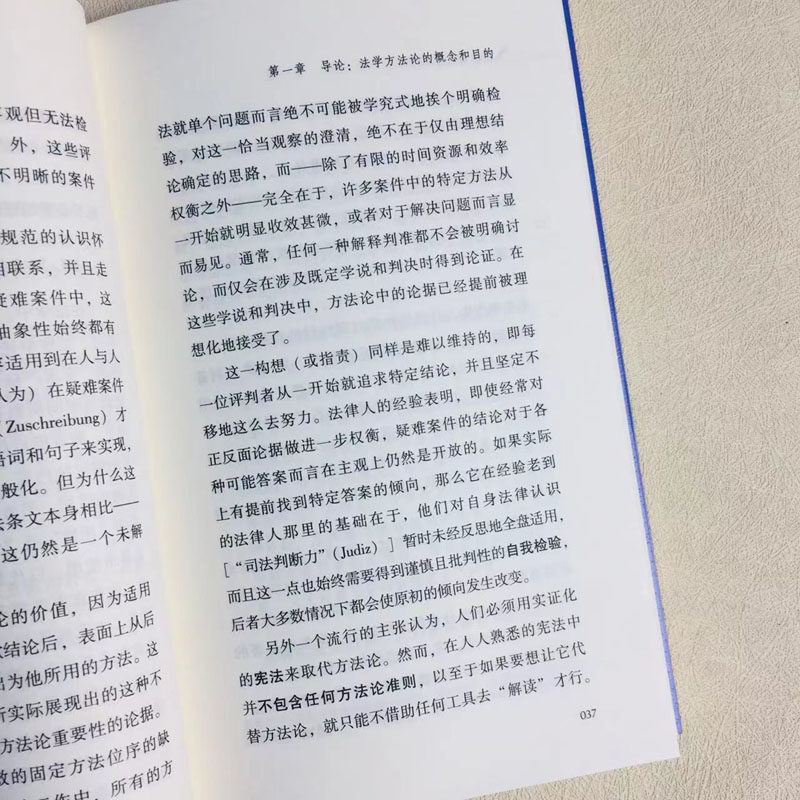 观但无法检
外，这些评
不明晰的案件
规范的认识怀
相联系，并且走
疑难案件中，这
抽象性始终都有
适用到在人与人
人为）在疑难案件
（Zuschreibung）才
语词和句子来实现，
般化。但为什么这
法条文本身相比——
这仍然是一个未解
论的价值，因为适用
结论后，表面上从后
出为他所用的方法。这
所实际展现出的这种不
方法论重要性的论据。
的固定方法位序的缺
工作中，所有的方
第一章 导论：法学方法论的概念和目的
法就单个问题而言绝不可能被学究式地挨个明确检
验，对这一恰当观察的澄清，绝不在于仅由理想结
论确定的思路，而——除了有限的时间资源和效率
权衡之外——完全在于，许多案件中的特定方法从
一开始就明显收效甚微，或者对于解决问题而言显
而易见。通常，任何一种解释判准都不会被明确讨
论，而仅会在涉及既定学说和判决时得到论证。在
这些学说和判决中，方法论中的论据已经提前被理
想化地接受了。
这一构想（或指责）同样是难以维持的，即每
一位评判者从一开始就追求特定结论，并且坚定不
移地这么去努力。法律人的经验表明，即使经常对
正反面论据做进一步权衡，疑难案件的结论对于各
种可能答案而言在主观上仍然是开放的。如果实际
上有提前找到特定答案的倾向，那么它在经验老到
的法律人那里的基础在于，他们对自身法律认识
［“司法判断力”（Judiz）］暂时未经反思地全盘适用，
而且这一点也始终需要得到谨慎且批判性的自我检验，
后者大多数情况下都会使原初的倾向发生改变。
另外一个流行的主张认为，人们必须用实证化
的宪法来取代方法论。然而，在人人熟悉的宪法中
并不包含任何方法论准则，以至于如果要想让它代
替方法论，就只能不借助任何工具去“解读”才行。
037